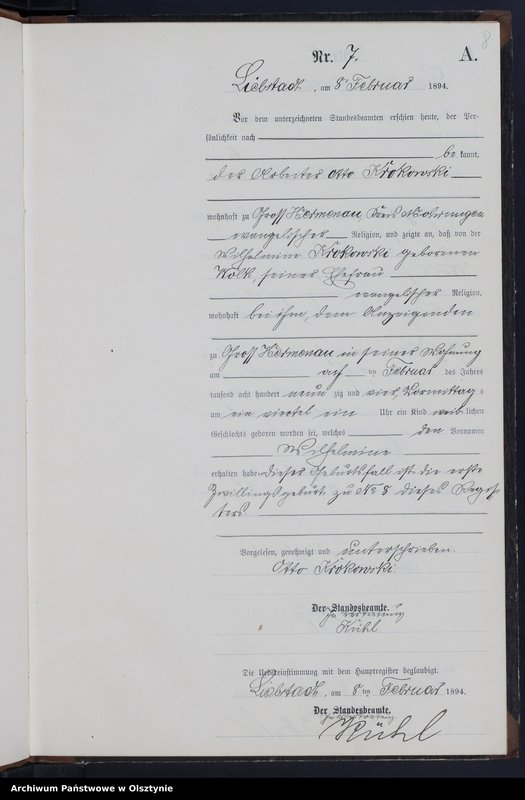 8
Nr. 7. A.
Liebstadt, am 8ten Februar 1894.
Vor dem unterzeichneten Standesbeamten erschien heute, der Per-
sönlichkeit nach
bekannt,
der Arbeiter Otto Krokowski
wohnhaft zu Gross Hermenau, Kreis Mohrungen
evangelischer Religion, und zeigte an, daß von der
Wilhelmine Krokowski geborenen
Wolk, seiner Ehefrau
evangelischer Religion,
wohnhaft bei ihm, dem Anzeigenden
zu Gross Hermenau in seiner Wohnung
am acht ten Februar des Jahres
tausend acht hundert neun zig und vier, Vormittags
um ein viertel ein Uhr ein Kind weib lichen
Geschlechts geboren worden sei, welches den Vornamen
Wilhelmine
erhalten habe. Dieser Geburtsfall ist die erste
Zwillingsgeburt zu No 8 dieses Regis-
ters.
Vorgelesen, genehmigt und unterschrieben.
Otto Krokowski.
Der Standesbeamte.
In Vertretung
Kühl
Die Uebereinstimmung mit dem Hauptregister beglaubigt.
Liebstadt, am 8ten Februar 1894.
Der Standesbeamte.
In Vertretung
Kühl
Archiwum Państwowe w Olsztynie